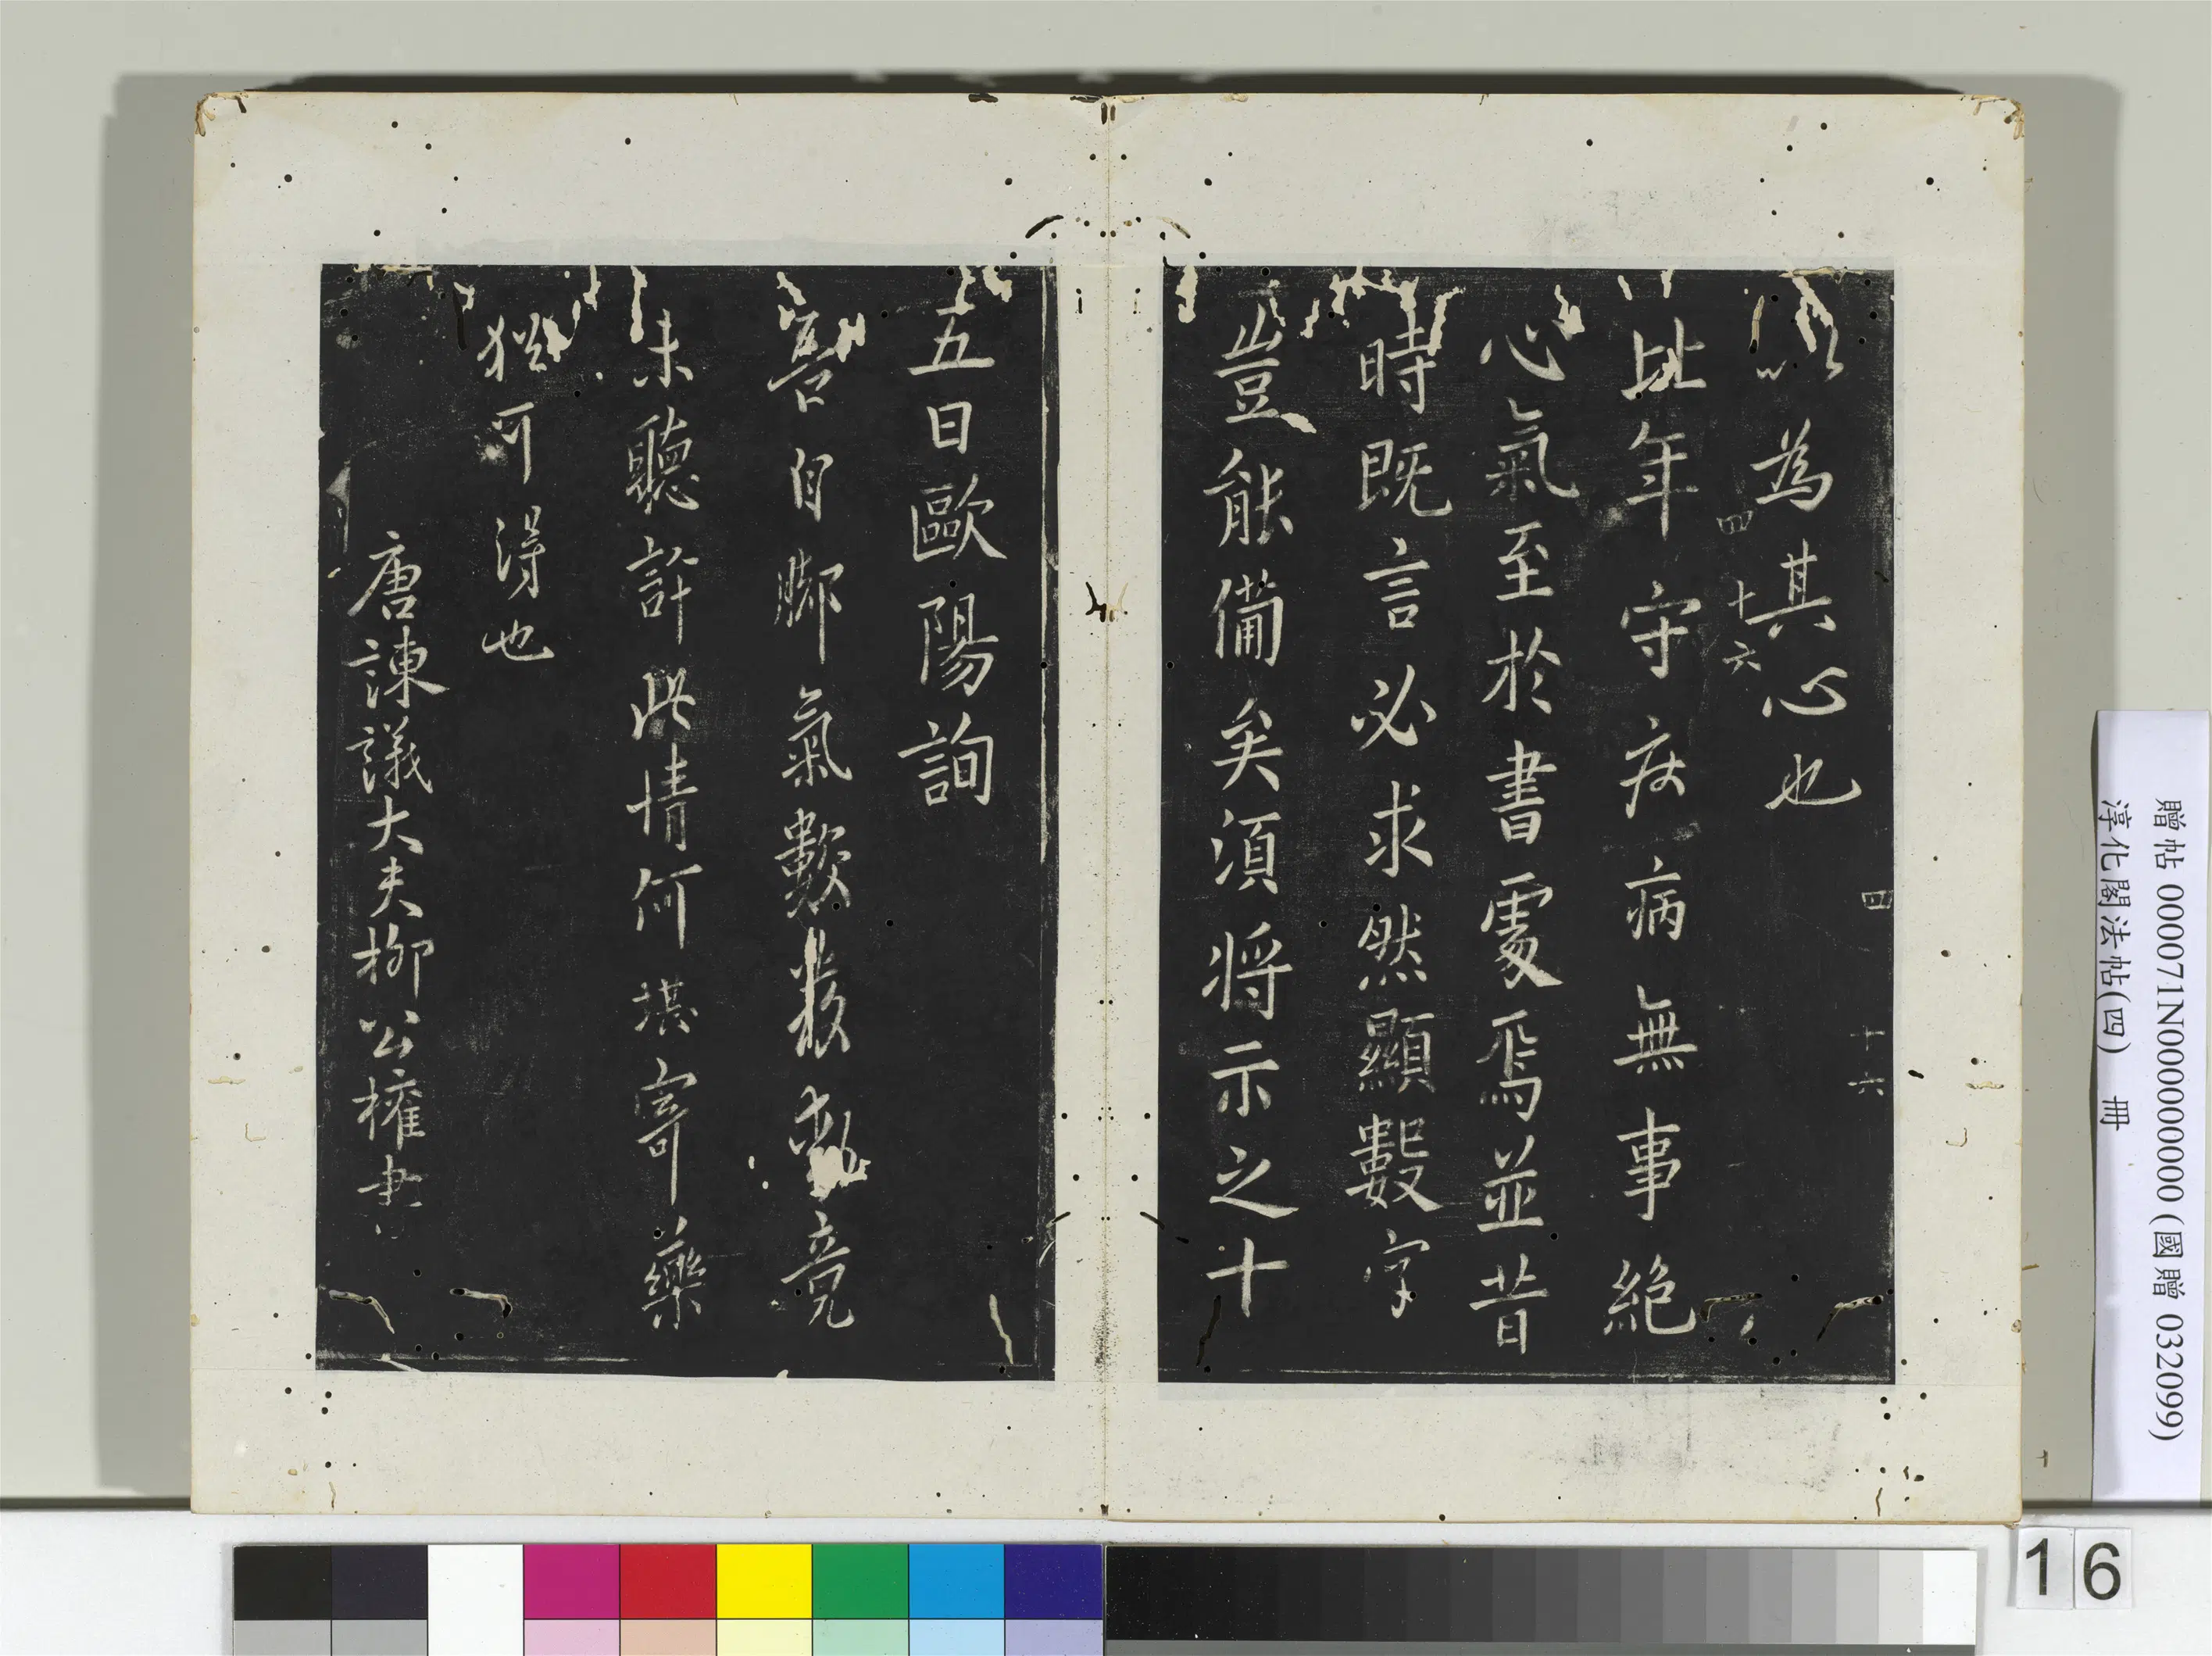 以為其心也
四 十六
比年守疾病無事絕
心氣至於書處焉並昔
時既言必求然顯數字
豈能備矣須將示之十
五日歐陽詢
吾自脚氣數發動竟
未聽許此情何堪寄藥
猶可得也
唐諫議大夫柳公權書
四 十六
贈帖 000071N000000000 (國贈 032099)
淳化閣法帖(四) 冊
16